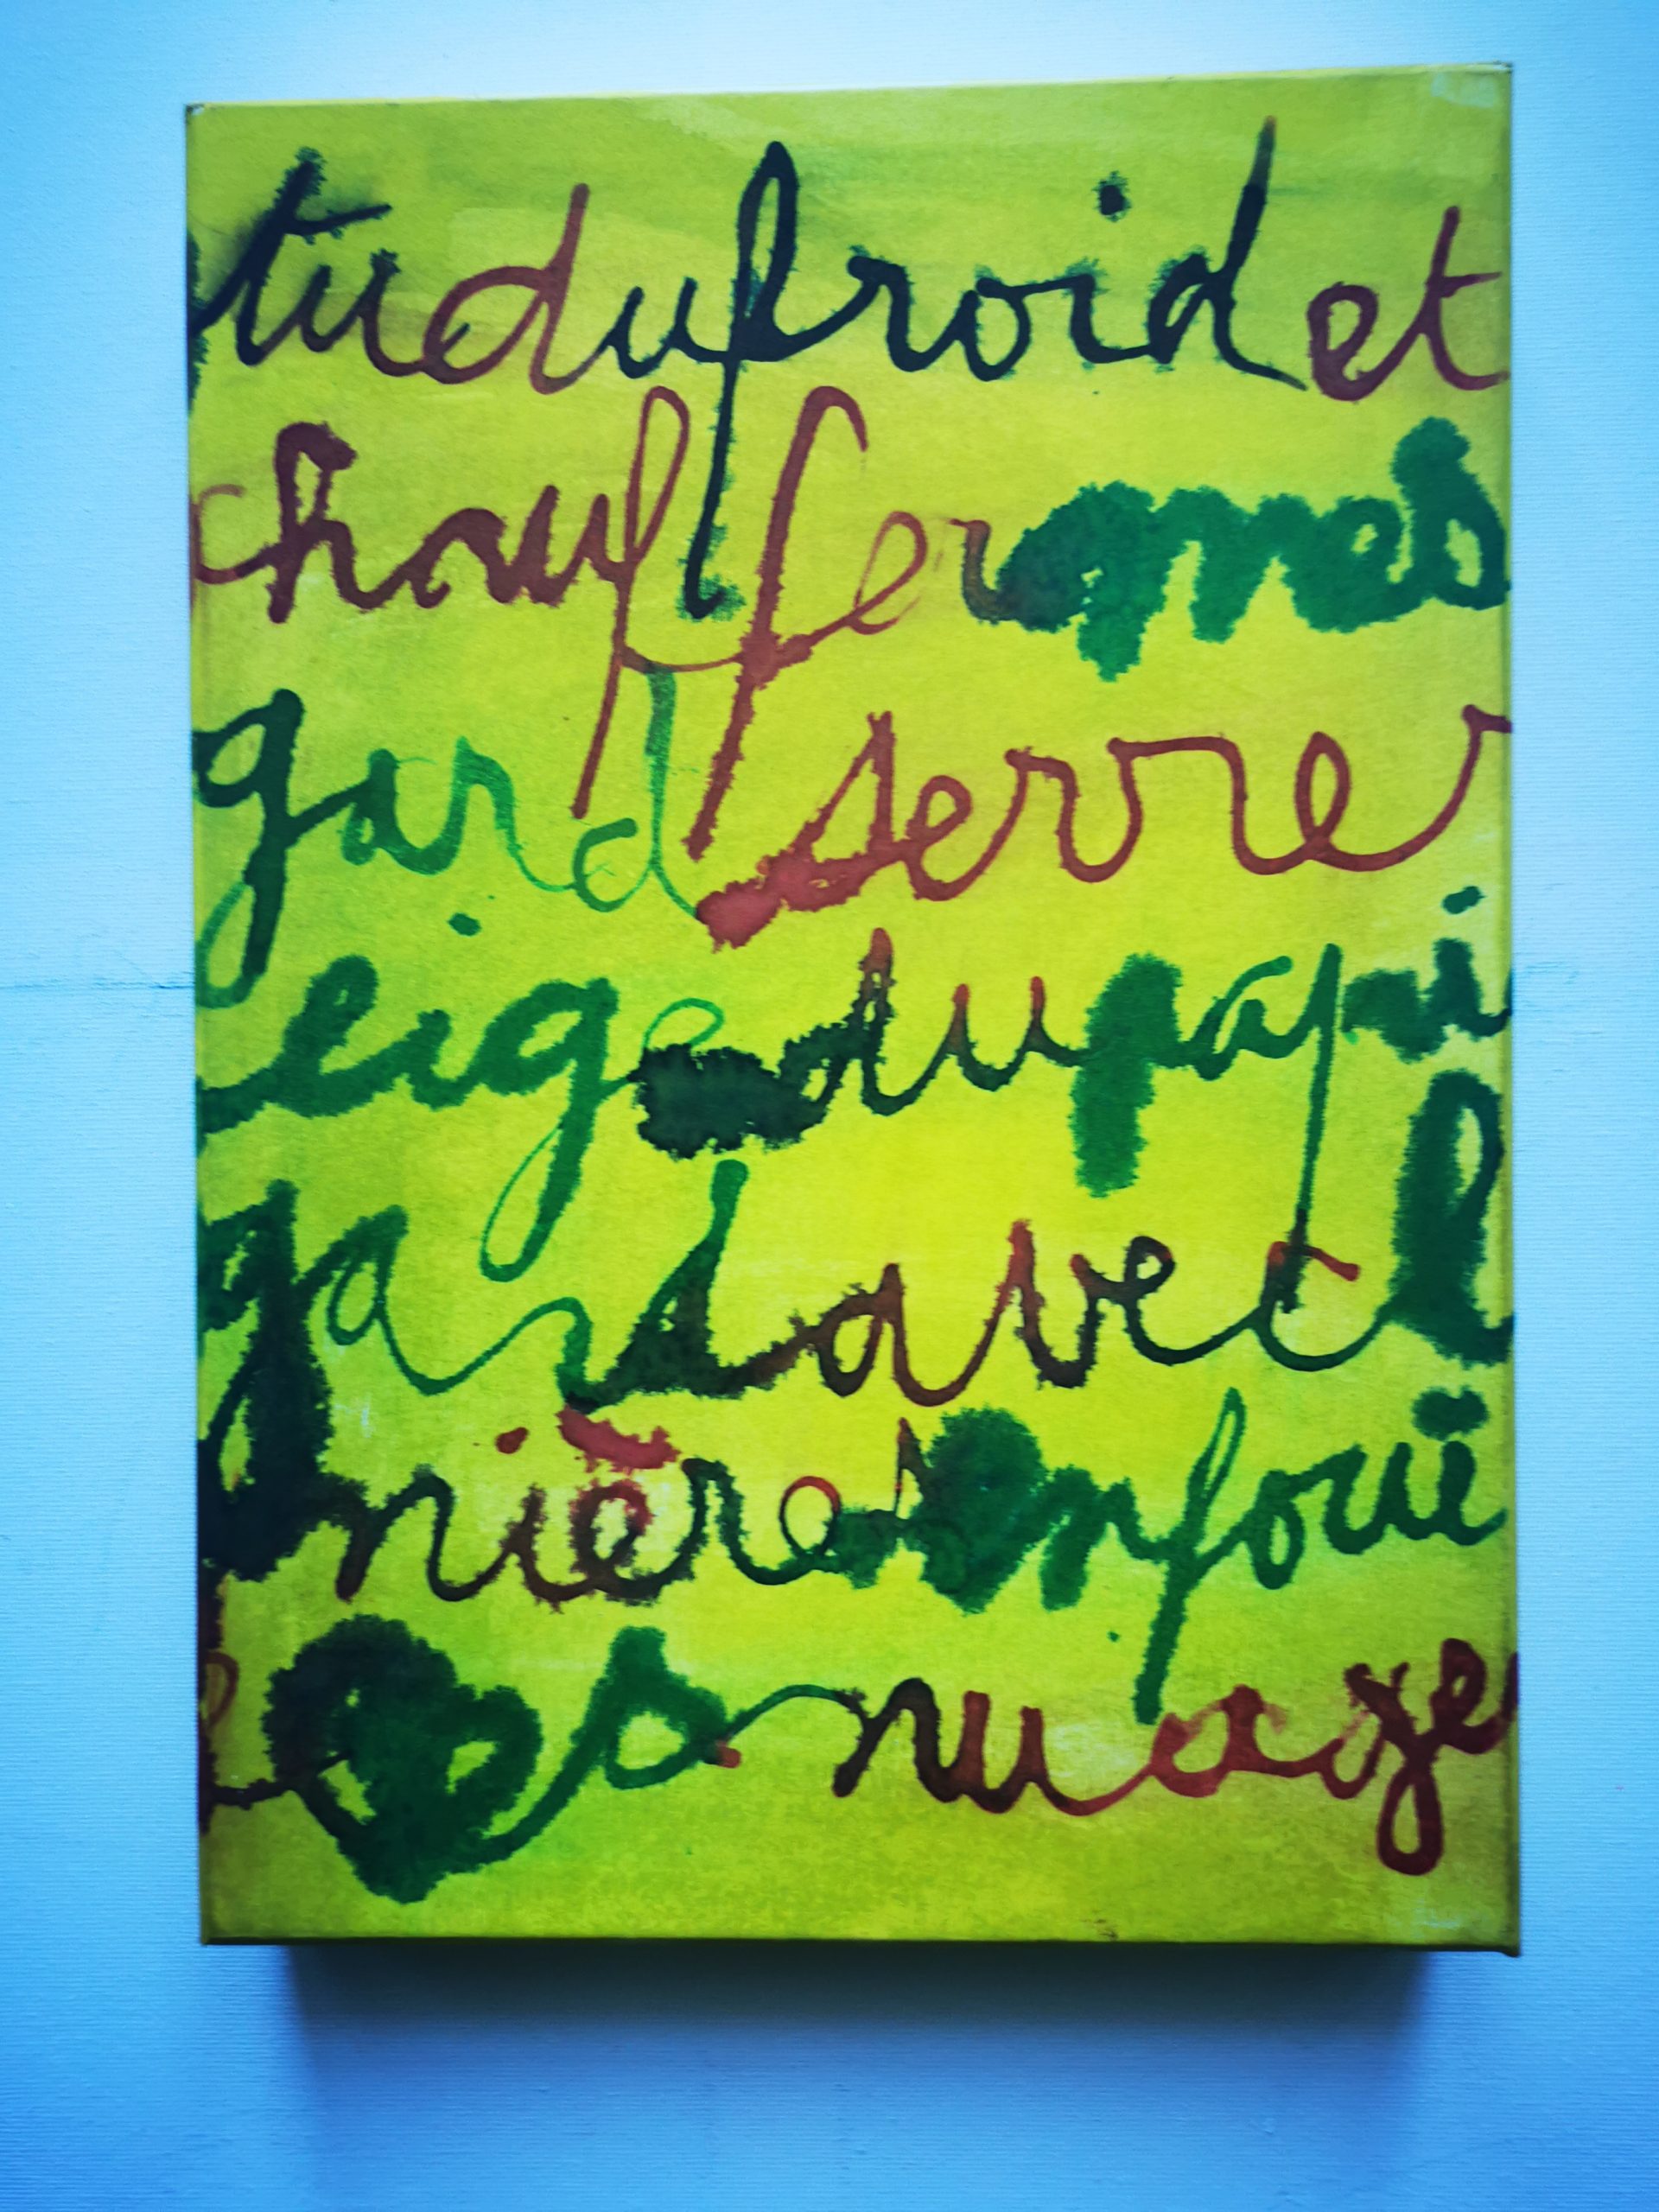 tu du froid et
chauffer mes
gard serre
eige du papi
gard avec l
nière enfoui
les nuage